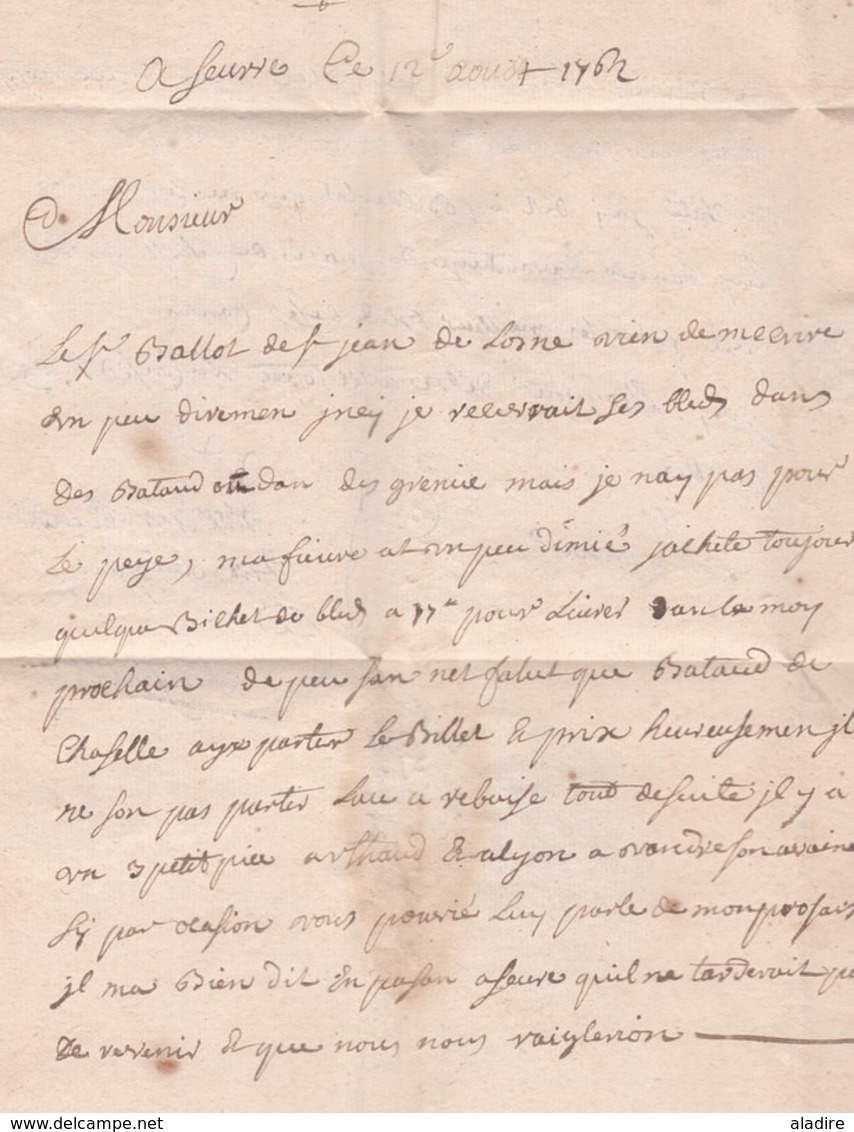 A Seurre Ce 12e aoust 1762
Monsieur
Le Sr Ballot de St jean de Losne vien de mecrire
un peu diremen jncy je recevrait ses bleds dans
des Bataud ou dan des grenie mais je nay pas pour
Le peye, ma fieuvre at un peu dimié jachete toujour
quelque Bilhet de bleds a pour Livrer dan le moy
prochain de peu san net falut que Bataud de
Chaselle aye porter Le Billet & prix heureusemen jl
ne son pas porter Lun a rebaise tout desuite jl y a
un petit pier arthaud & alyon a vandre son avaine
Sy par ocasion vous pourié Luy parle de mon prosais
jl ma Bien dit En pasan aseure quil ne tarderait pa
de revenir & que nous nous raiglerion
aladire